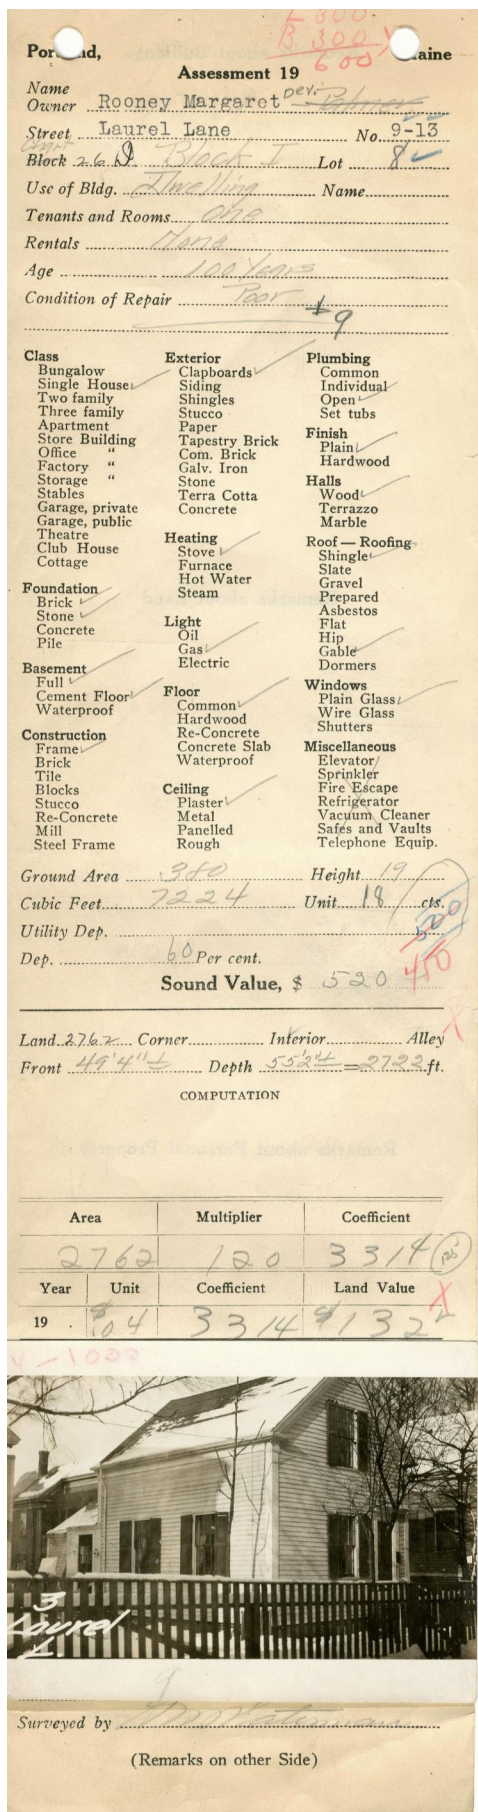 L 300
B 300
600
Portland, Maine
Assessment 19
Name
Owner Rooney Margaret Devi. Palmer
Street Laurel Lane No. 9-13
Block 26 Block I Lot 8
Use of Bldg. Dwelling Name
Tenants and Rooms One
Rentals None
Age 100 Years
Condition of Repair Poor
+9
Class
Bungalow
Single House
Two family
Three family
Apartment
Store Building
Office "
Factory "
Storage "
Stables
Garage, private
Garage, public
Theatre
Club House
Cottage
Foundation
Brick
Stone
Concrete
Pile
Basement
Full
Cement Floor
Waterproof
Construction
Frame
Brick
Tile
Blocks
Stucco
Re-Concrete
Mill
Steel Frame
Exterior
Clapboards
Siding
Shingles
Stucco
Paper
Tapestry Brick
Com. Brick
Galv. Iron
Stone
Terra Cotta
Concrete
Heating
Stove
Furnace
Hot Water
Steam
Light
Oil
Gas
Electric
Floor
Common
Hardwood
Re-Concrete
Concrete Slab
Waterproof
Ceiling
Plaster
Metal
Panelled
Rough
Plumbing
Common
Individual
Open
Set tubs
Finish
Plain
Hardwood
Halls
Wood
Terrazzo
Marble
Roof — Roofing
Shingle
Slate
Gravel
Prepared
Asbestos
Flat
Hip
Gable
Dormers
Windows
Plain Glass
Wire Glass
Shutters
Miscellaneous
Elevator
Sprinkler
Fire Escape
Refrigerator
Vacuum Cleaner
Safes and Vaults
Telephone Equip.
Ground Area 380 Height 19
Cubic Feet 7224 Unit 18 cts.
Utility Dep. 500
Dep. 60 Per cent. 450
Sound Value, $ 520
Land 2762 Corner Interior Alley
Front 49'4"± Depth 55'2"± = 2722 ft.
COMPUTATION
Area Multiplier Coefficient
2762 120 3314 125
Year Unit Coefficient Land Value
19 . $.04 3314 $132
3
Laurel
L.
9
Surveyed by
(Remarks on other Side)